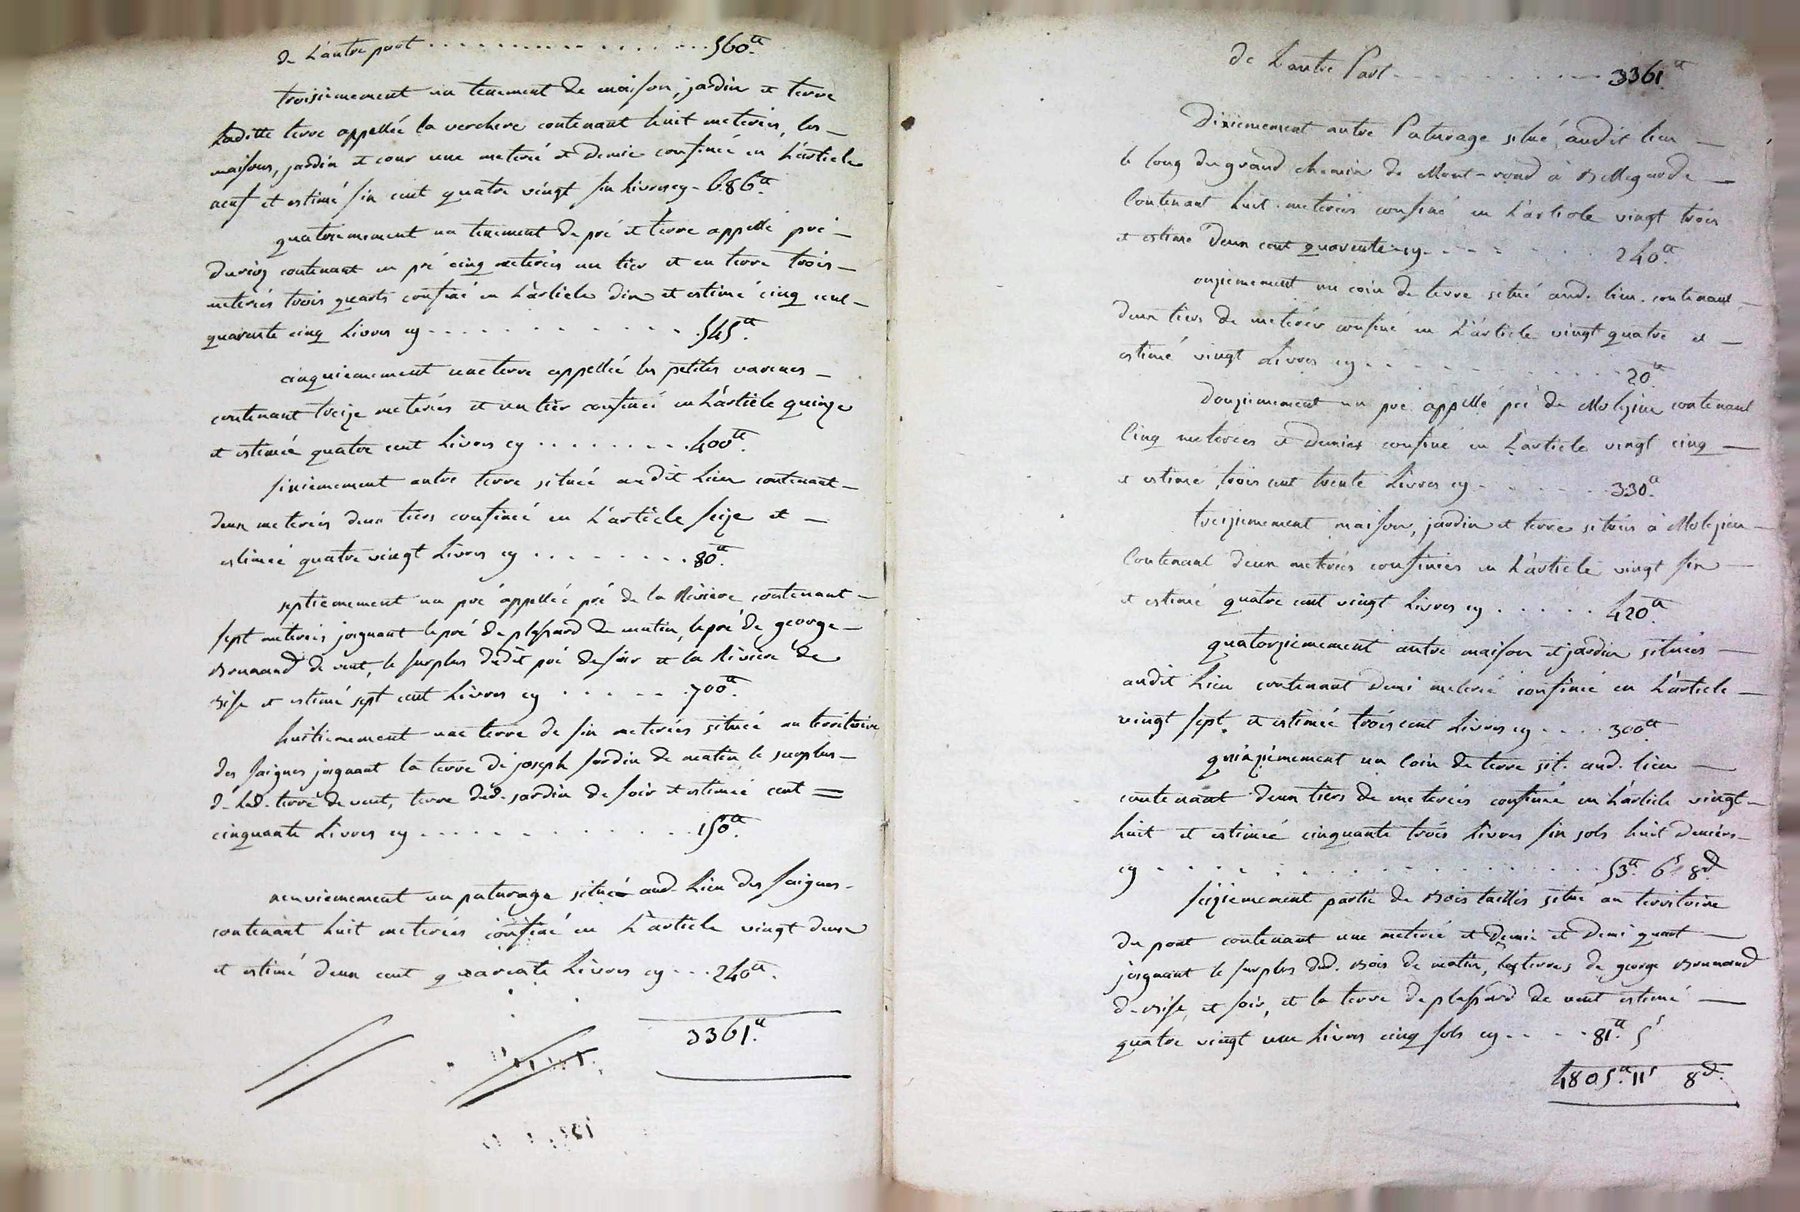 de L'autre part ........ 560.tt
troisiemement un tenement de maison, jardin et terre
Laditte terre appellée la verchere contenant huit meterées, les
maisons, jardin et cour une meterée et demie confinée en L'article
neuf et estimé six cent quatre vingt six Livres cy - 686.tt
quatriemement un tenement de pré et terre appellé pré -
duriez contenant en pré cinq meterées un tier et en terre trois -
meterées trois quarts confiné en L'article dix et estimé cinq cent -
quarente cinq Livres cy ........ 545.tt
cinquiemement une terre appellée les petites varenes -
contenant treize meterées et un tier confinée en L'article quinze
et estimée quatre cent Livres cy ........ 400.tt
sixiemement autre terre située au dit Lieu contenant -
deux meterées deux tiers confinée en L'article seize et -
estimée quatre vingt Livres cy ........ 80.tt
septiemement un pré appellée pré de la Riviere contenant -
sept meterées joignant le pré de plassard de matin, le pré de george -
Brunand de vent, le surplus dudit pré de soir et la Riviere de
bise et estimé sept cent Livres cy ...... 700.tt
huitiemement une terre de six meterées située au territoire
des saignes joignant la terre de joseph jardin de matin le surplus -
d. lad. terre de vent, terre dud. jardin de soir et estimée cent =
cinquante Livres cy ........ 150.tt
neuviemement un paturage situé aud. Lieu des saignes -
contenant huit meterées confiné en L'article vingt deux
et estimé deux cent quarente Livres cy ... 240.tt
3361.tt
de L'autre Part ........ 3361.tt
Dixiemement autre Paturage situé audit lieu -
le long du grand chemin de Mont-rond à Bellegarde -
Contenant huit meterées confiné en L'article vingt trois
et estimé deux cent quarente cy ........ 240.tt
onziemement un coin de terre situé aud. lieu contenant -
deux tiers de meterée confiné en L'article vingt quatre et -
estimé vingt Livres cy ........ 20.tt
Douziemement un pré appellé pré de Molezieu contenant
Cinq meterées et demies confiné en L'article vingt cinq -
et estimé trois cent trente Livres cy ...... 330.tt
treiziemement maison, jardin et terre situés à Molezieu -
Contenant deux meterées confinées en L'article vingt six -
et estimé quatre cent vingt Livres cy ...... 420.tt
quatorziemement autre maison et jardin situées -
audit Lieu contenant demi meterée confinée en L'article -
vingt sept, et estimée trois cent Livres cy .... 300.tt
quinziemement un Coin de terre sit. aud. lieu -
contenant deux tiers de meterées confiné en L'article vingt -
huit et estimée cinquante trois Livres six sols huit deniers -
cy ........ 53.tt 6s 8d
seiziemement partie de Bois taillis situé au territoire
du pont contenant une meterée et demie et demi quart -
joignant le surplus dud. Bois de matin, les terres de george Brunand
d. bise, et soir, et la terre de plassard de vent estimé -
quatre vingt une Livres cinq sols cy .... 81.tt 5s
4805.tt 11s 8d.